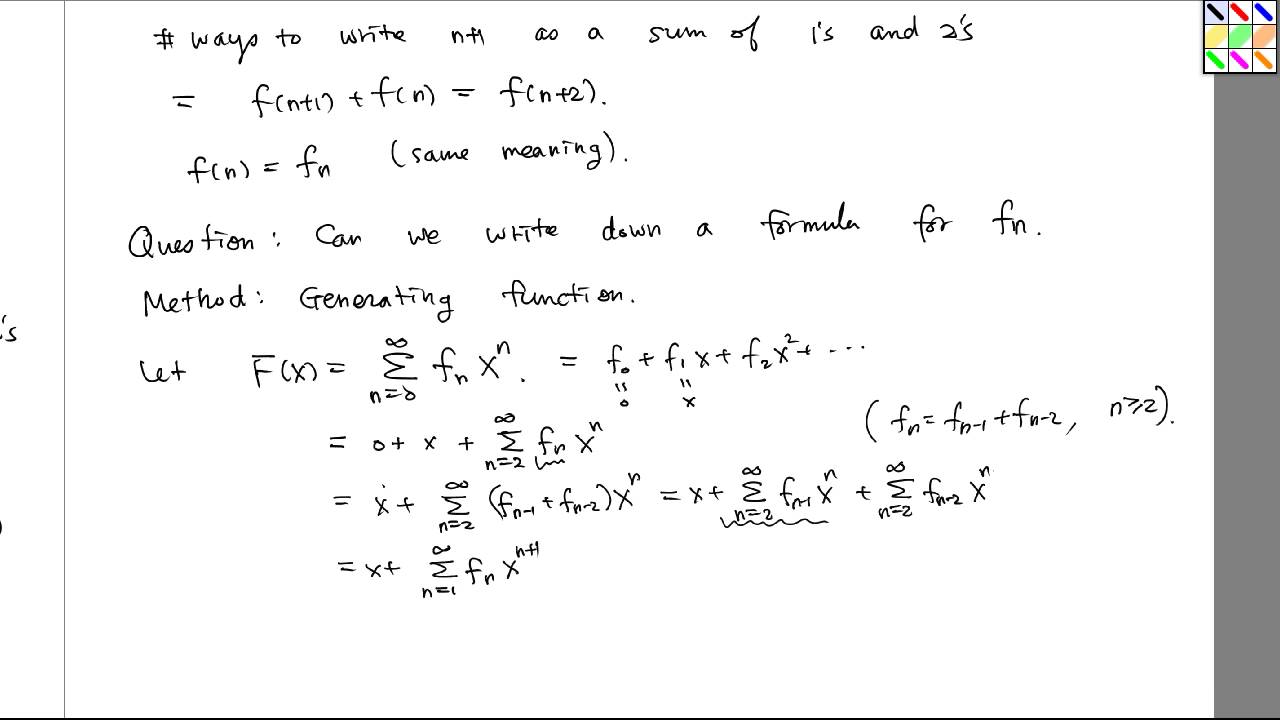 # ways to write n+1 as a sum of 1's and 2's
= f(n+1) + f(n) = f(n+2).
f(n) = fₙ (same meaning).
Question: Can we write down a formula for fₙ.
Method: Generating function.
's
Let F(x) = ∑_{n=0}^{∞} fₙ xⁿ. = f₀ + f₁ x + f₂ x² + ⋯
" "
0 x
(fₙ = fₙ₋₁ + fₙ₋₂, n≥2).
= 0 + x + ∑_{n=2}^{∞} fₙ xⁿ
= x + ∑_{n=2}^{∞} (fₙ₋₁ + fₙ₋₂) xⁿ = x + ∑_{n=2}^{∞} fₙ₋₁ xⁿ + ∑_{n=2}^{∞} fₙ₋₂ xⁿ
)
= x + ∑_{n=1}^{∞} fₙ xⁿ⁺¹